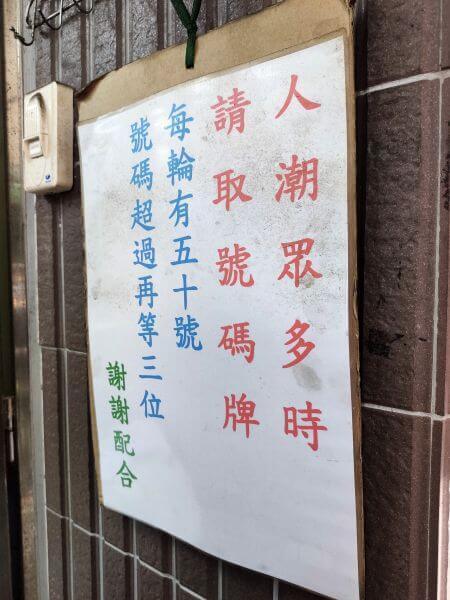 人潮眾多時
請取號碼牌
每輪有五十號
號碼超過再等三位
謝謝配合